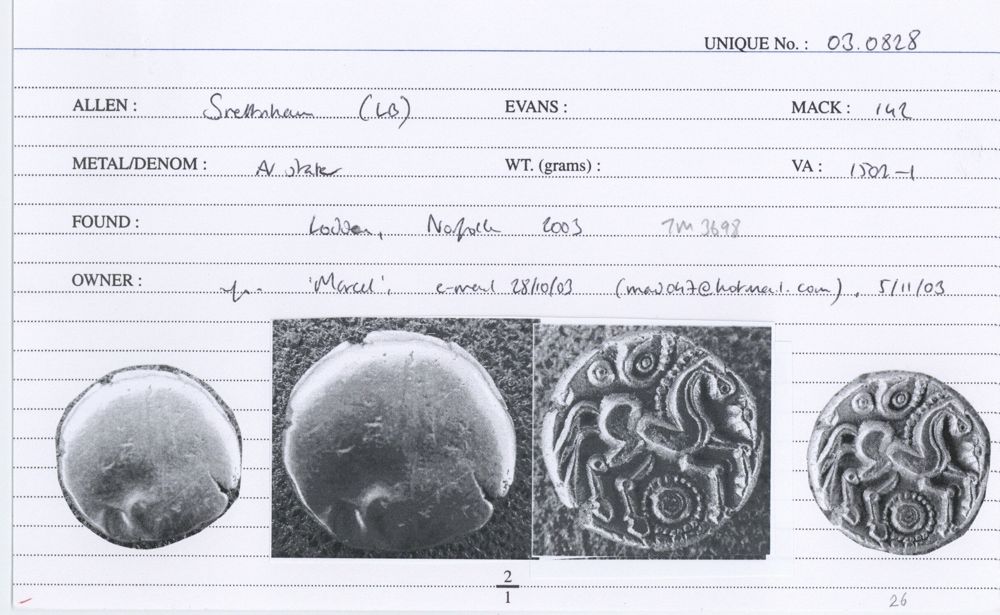 UNIQUE No. : 03.0828
ALLEN : (LB) EVANS : MACK : 142
METAL/DENOM : AV stater WT. (grams) : VA : 1502-1
FOUND : Loddon, Norfolk 2003 TM 3698
OWNER : 'Marcel', e-mail 28/10/03 , 5/11/03
2
1
26